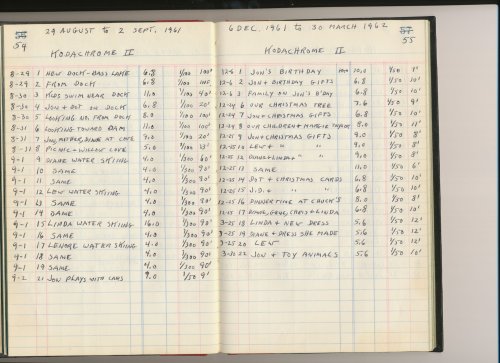 54
29 AUGUST TO 2 SEPT. 1961
KODACHROME II
8-29 1 NEW DOCK-BASS LAKE 6.8 1/100 100'
8-29 2 FROM DOCK 6.8 1/100 100'
8-30 3 KIDS SWIM NEAR DOCK 11.0 1/100 40'
8-30 4 JON + DOT ON DOCK 6.8 1/100 20'
8-30 5 LOOKING NO. FROM DOCK 8.0 1/100 100'
8-31 6 LOOKING TOWARD DAM 11.0 1/100 100'
8-31 7 JON, MOTHER, DIANE AT CAFE 9.0 1/100 20'
8-31 8 PICNIC-WILLOW COVE 5.0 1/100 15'
9-1 9 DIANE WATER SKIING 4.0 1/300 60'
9-1 10 SAME 4.0 1/300 90'
9-1 11 SAME 4.0 1/300 90'
9-1 12 LEW WATER SKIING 4.0 1/300 90'
9-1 13 SAME 4.0 1/300 90'
9-1 14 SAME 4.0 1/300 90'
9-1 15 LINDA WATER SKIING 4.0 1/300 90'
9-1 16 SAME 4.0 1/300 90'
9-1 17 LENORE WATER SKIING 4.0 1/300 90'
9-1 18 SAME 4.0 1/300 90'
9-1 19 SAME 4.0 1/300 90'
9-2 21 JON PLAYS WITH CARS 9.0 1/50 9'
6 DEC. 1961 TO 30 MARCH 1962
55
KODACHROME II
12-6 1 JON'S BIRTHDAY 10.0 1/50 7'
12-6 2 JON + BIRTHDAY GIFTS 6.8 1/50 10'
12-6 3 FAMILY ON JON'S B'DAY 6.8 1/50 10'
12-24 6 OUR CHRISTMAS TREE 7.6 1/50 9'
12-24 7 JON + CHRISTMAS GIFTS 6.8 1/50 10'
12-24 8 OUR CHILDREN + MARGIE TAYLOR 8.0 1/50 11'
12-25 9 JON + CHRISTMAS GIFTS 9.0 1/50 8'
12-25 10 LEW + " " 9.0 1/50 8'
12-25 12 DIANE + LINDA + " " 9.0 1/50 8'
12-25 13 SAME 11.0 1/50 6'
12-25 14 DOT + CHRISTMAS CARDS 6.8 1/50 10'
12-25 15 J.D. + " " 6.8 1/50 10'
12-25 16 DINNERTIME AT CHUCK'S 8.0 1/50 8'
12-25 17 DIANE, GREG, CHRIS + LINDA 6.8 1/50 10'
3-25 18 LINDA + NEW DRESS 5.6 1/50 12'
3-25 19 DIANE + DRESS SHE MADE 5.6 1/50 12'
3-25 20 LEW 5.6 1/50 12'
3-30 22 JON + TOY ANIMALS 5.6 1/50 10'